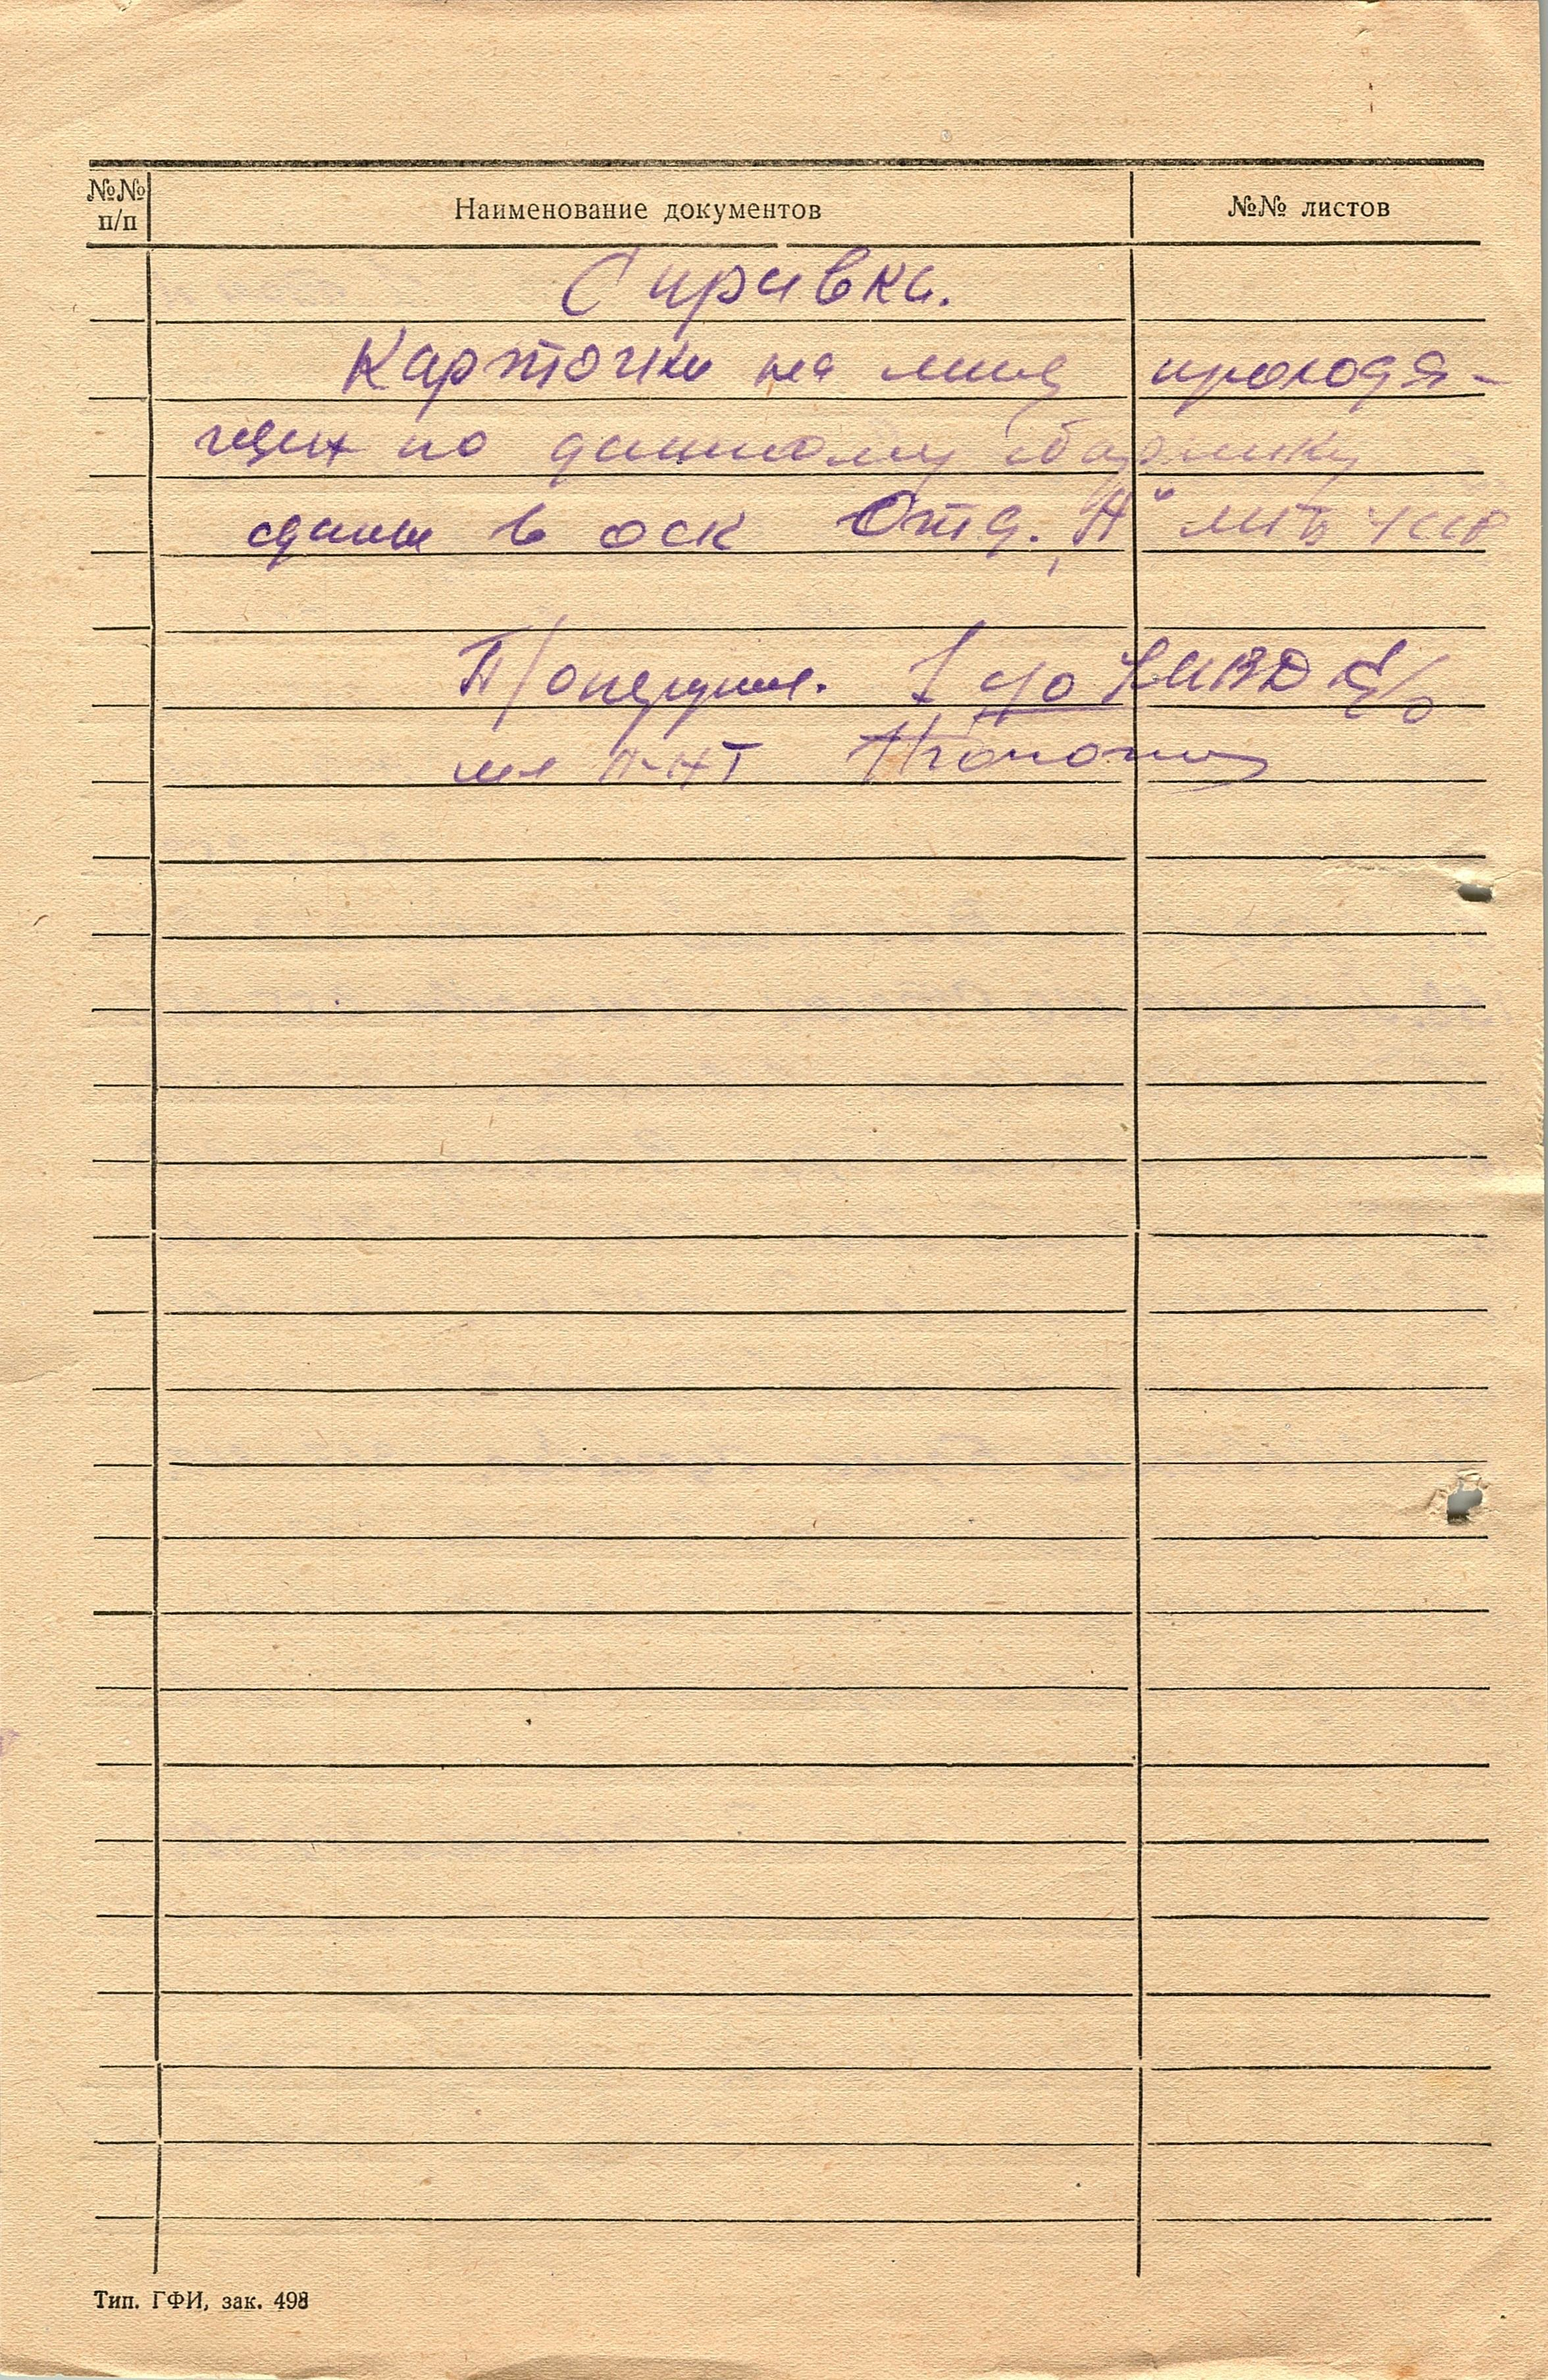 №№ п/п
Наименование документов
№№ листов
Справка.
Карточки на лица проходя-
щих по данному сборнику
сданы в оск Отд. „А“ МГБ УССР
П/оперупол. 1 УКВД
мл л-нт
Тип. ГФИ, зак. 498